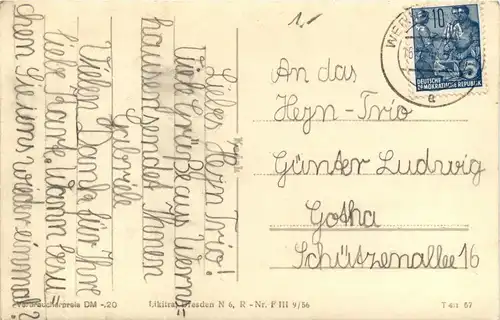 1.
Liebes Heyn Trio!
Viele Grüße aus Werns=
hausen sendet Ihnen
Gabriele
Vielen Dank für Ihre
liebe Karte. Wann besu=
chen Sie uns wieder einmal?
An das
Heyn-Trio
Günter Ludwig
Gotha
Schützenallee 16
WER
10
DEUTSCHE
DEMOKRATISCHE REPUBLIK
5
a
Verbraucherpreis DM -.20
Likitra, Dresden N 6, R - Nr. F III 9/56
57